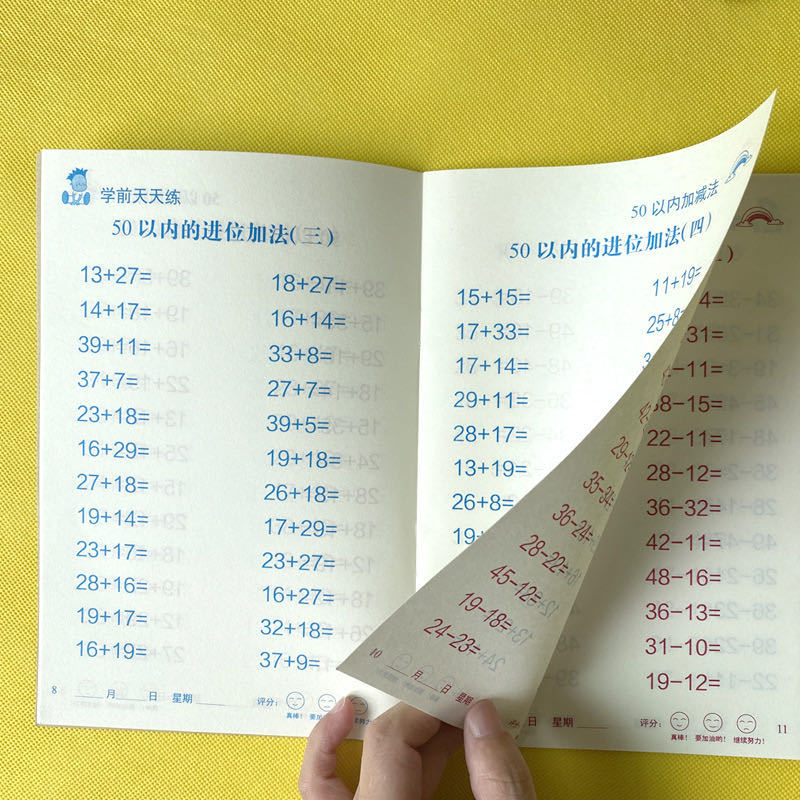 学前天天练
50以内的进位加法(三)
13+27= 18+27=
14+17= 16+14=
39+11= 33+8=
37+7= 27+7=
23+18= 39+5=
16+29= 19+18=
27+18= 26+18=
19+14= 17+29=
23+17= 23+27=
28+16= 16+27=
19+17= 32+18=
16+19= 37+9=
8 月 日 星期 评分:
真棒! 要加油哟! 继续努力!
50以内加减法
50以内的进位加法(四)
15+15= 11+19=
17+33= 25+8=
17+14=
29+11=
28+17=
13+19=
26+8=
19+
35-34=
36-24=
28-22=
45-12=
19-18=
24-23=
10 月 日 星期
38-15=
22-11=
28-12=
36-32=
42-11=
48-16=
36-13=
31-10=
19-12=
日 星期 评分:
真棒! 要加油哟! 继续努力!
11